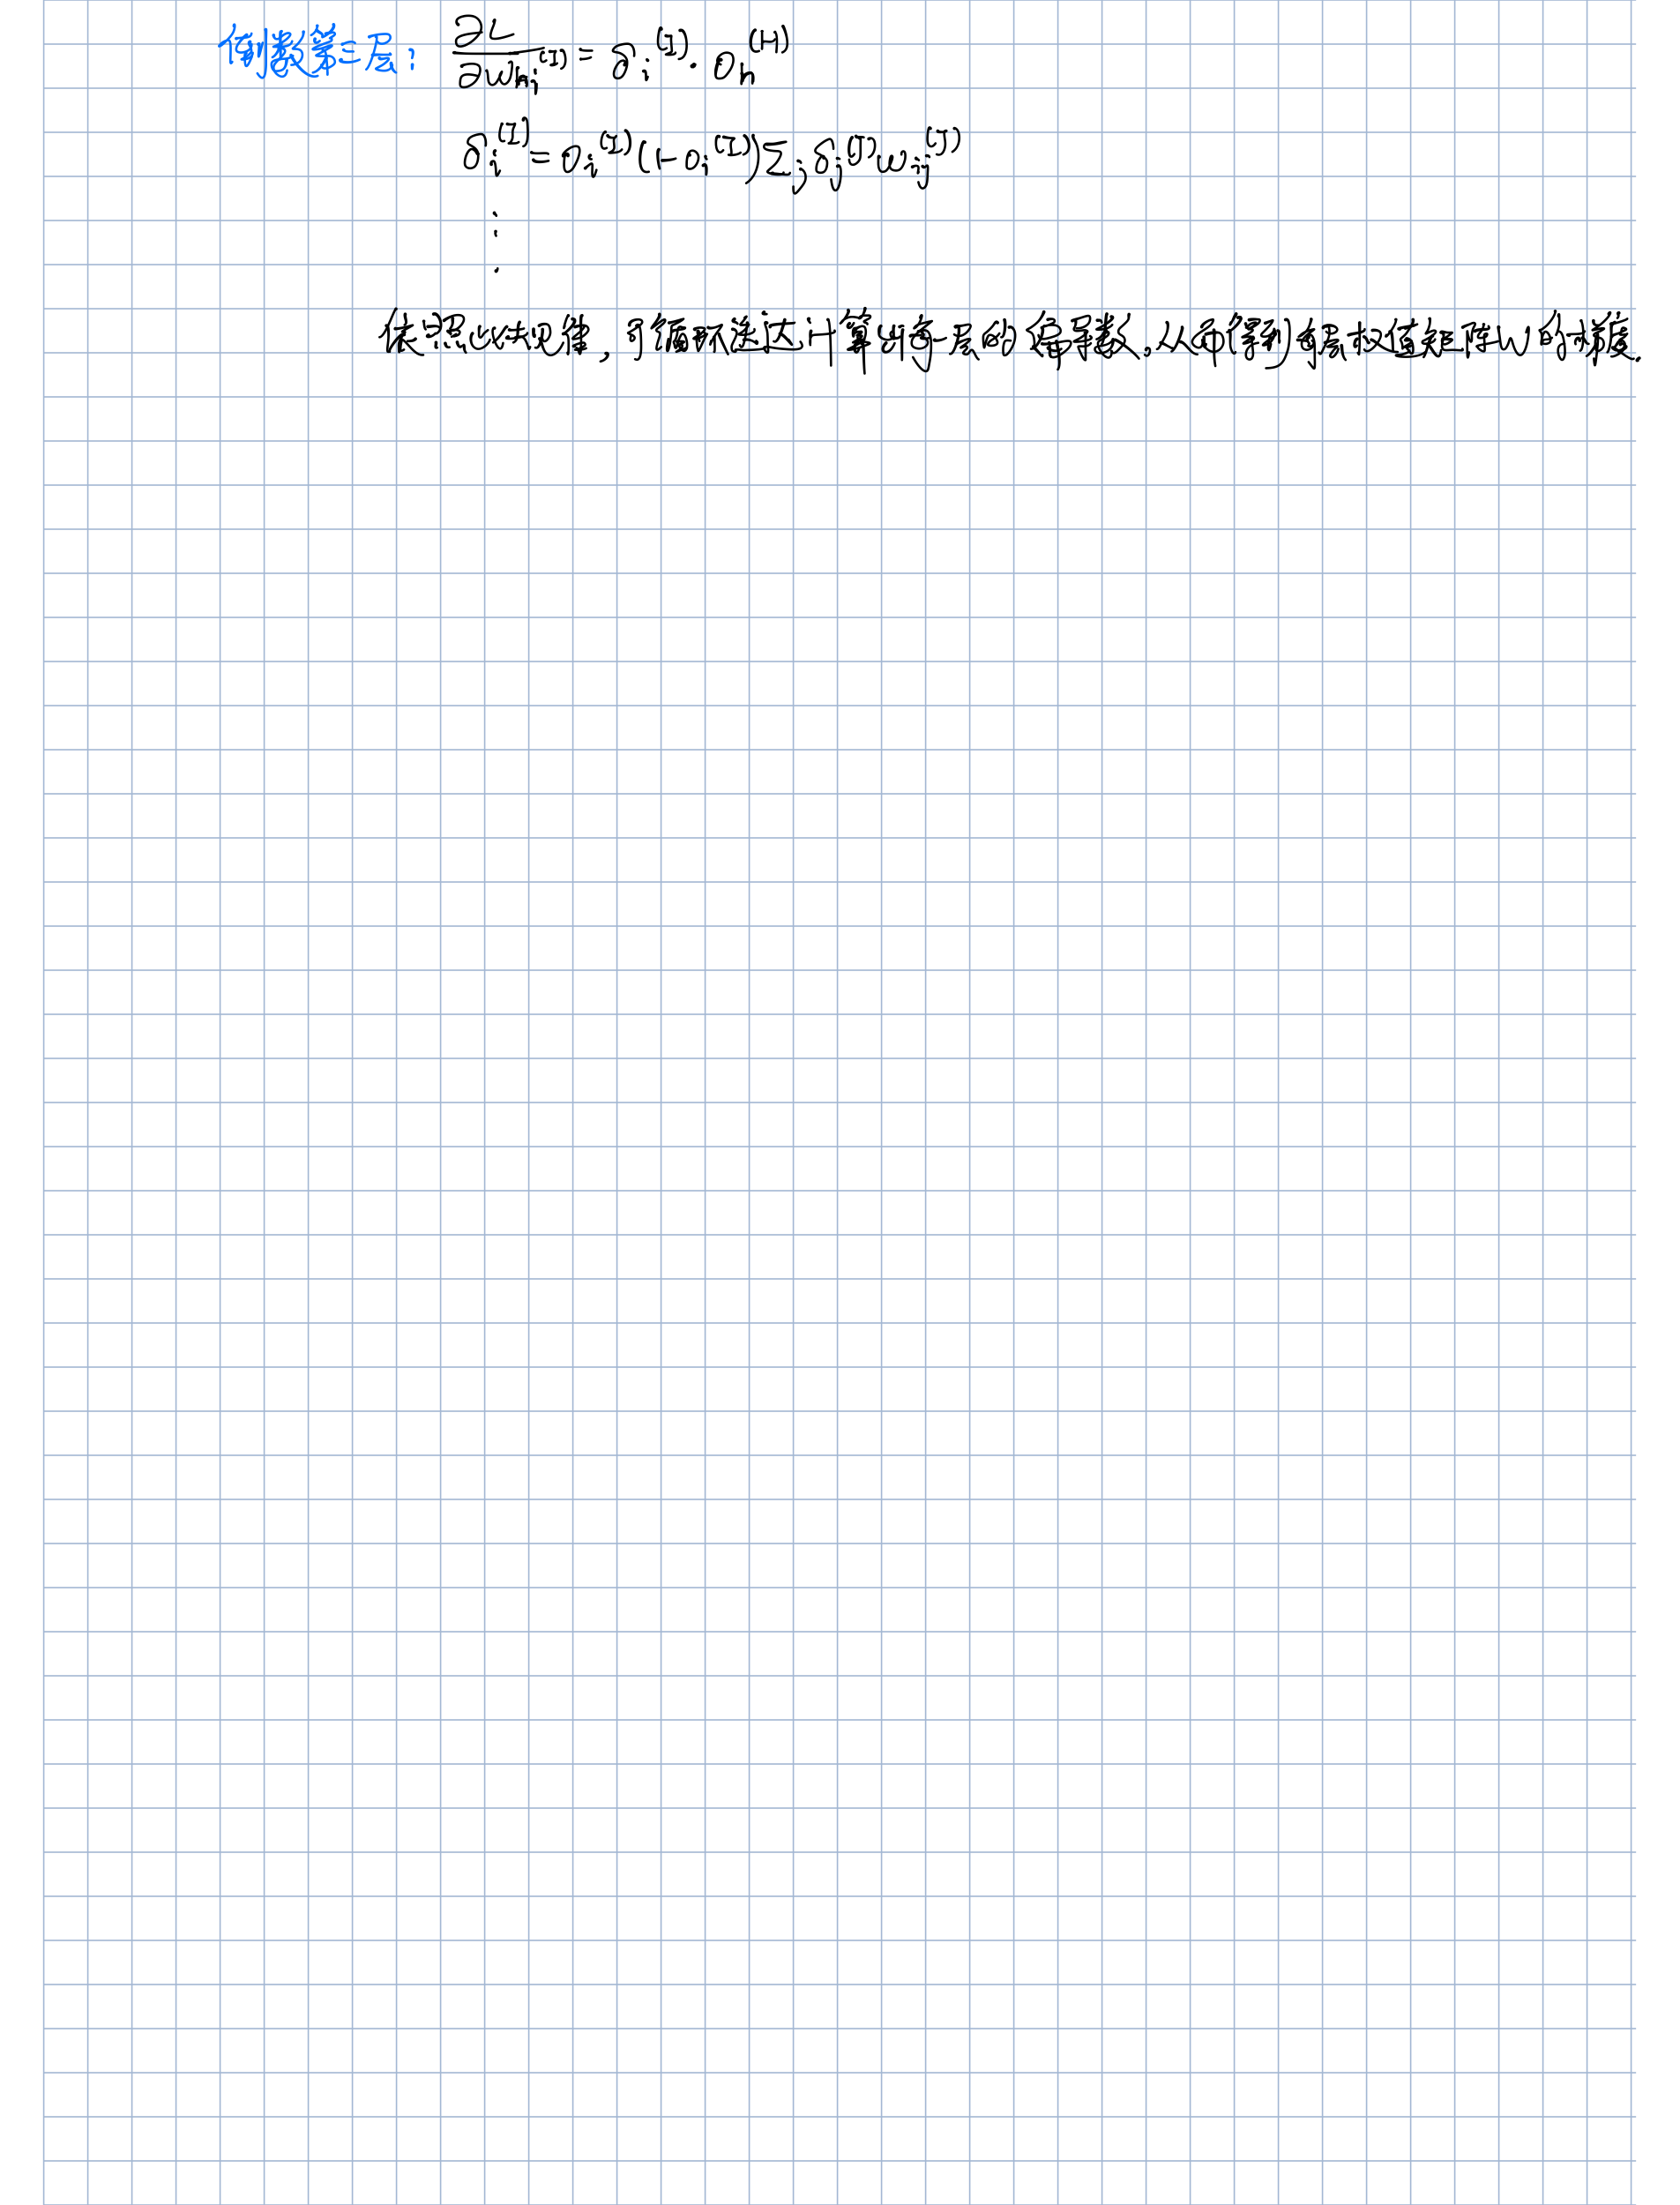 倒数第三层: ∂L/∂w_hi^(I) = δ_i^(I) · o_h^(H)
δ_i^(I) = o_i^(I) (1-o_i^(I)) Σ_j δ_j^(J) w_ij^(J)
⋮
依照此规律,可循环迭代计算出每一层的偏导数,从而得到每层权值矩阵W的梯度.